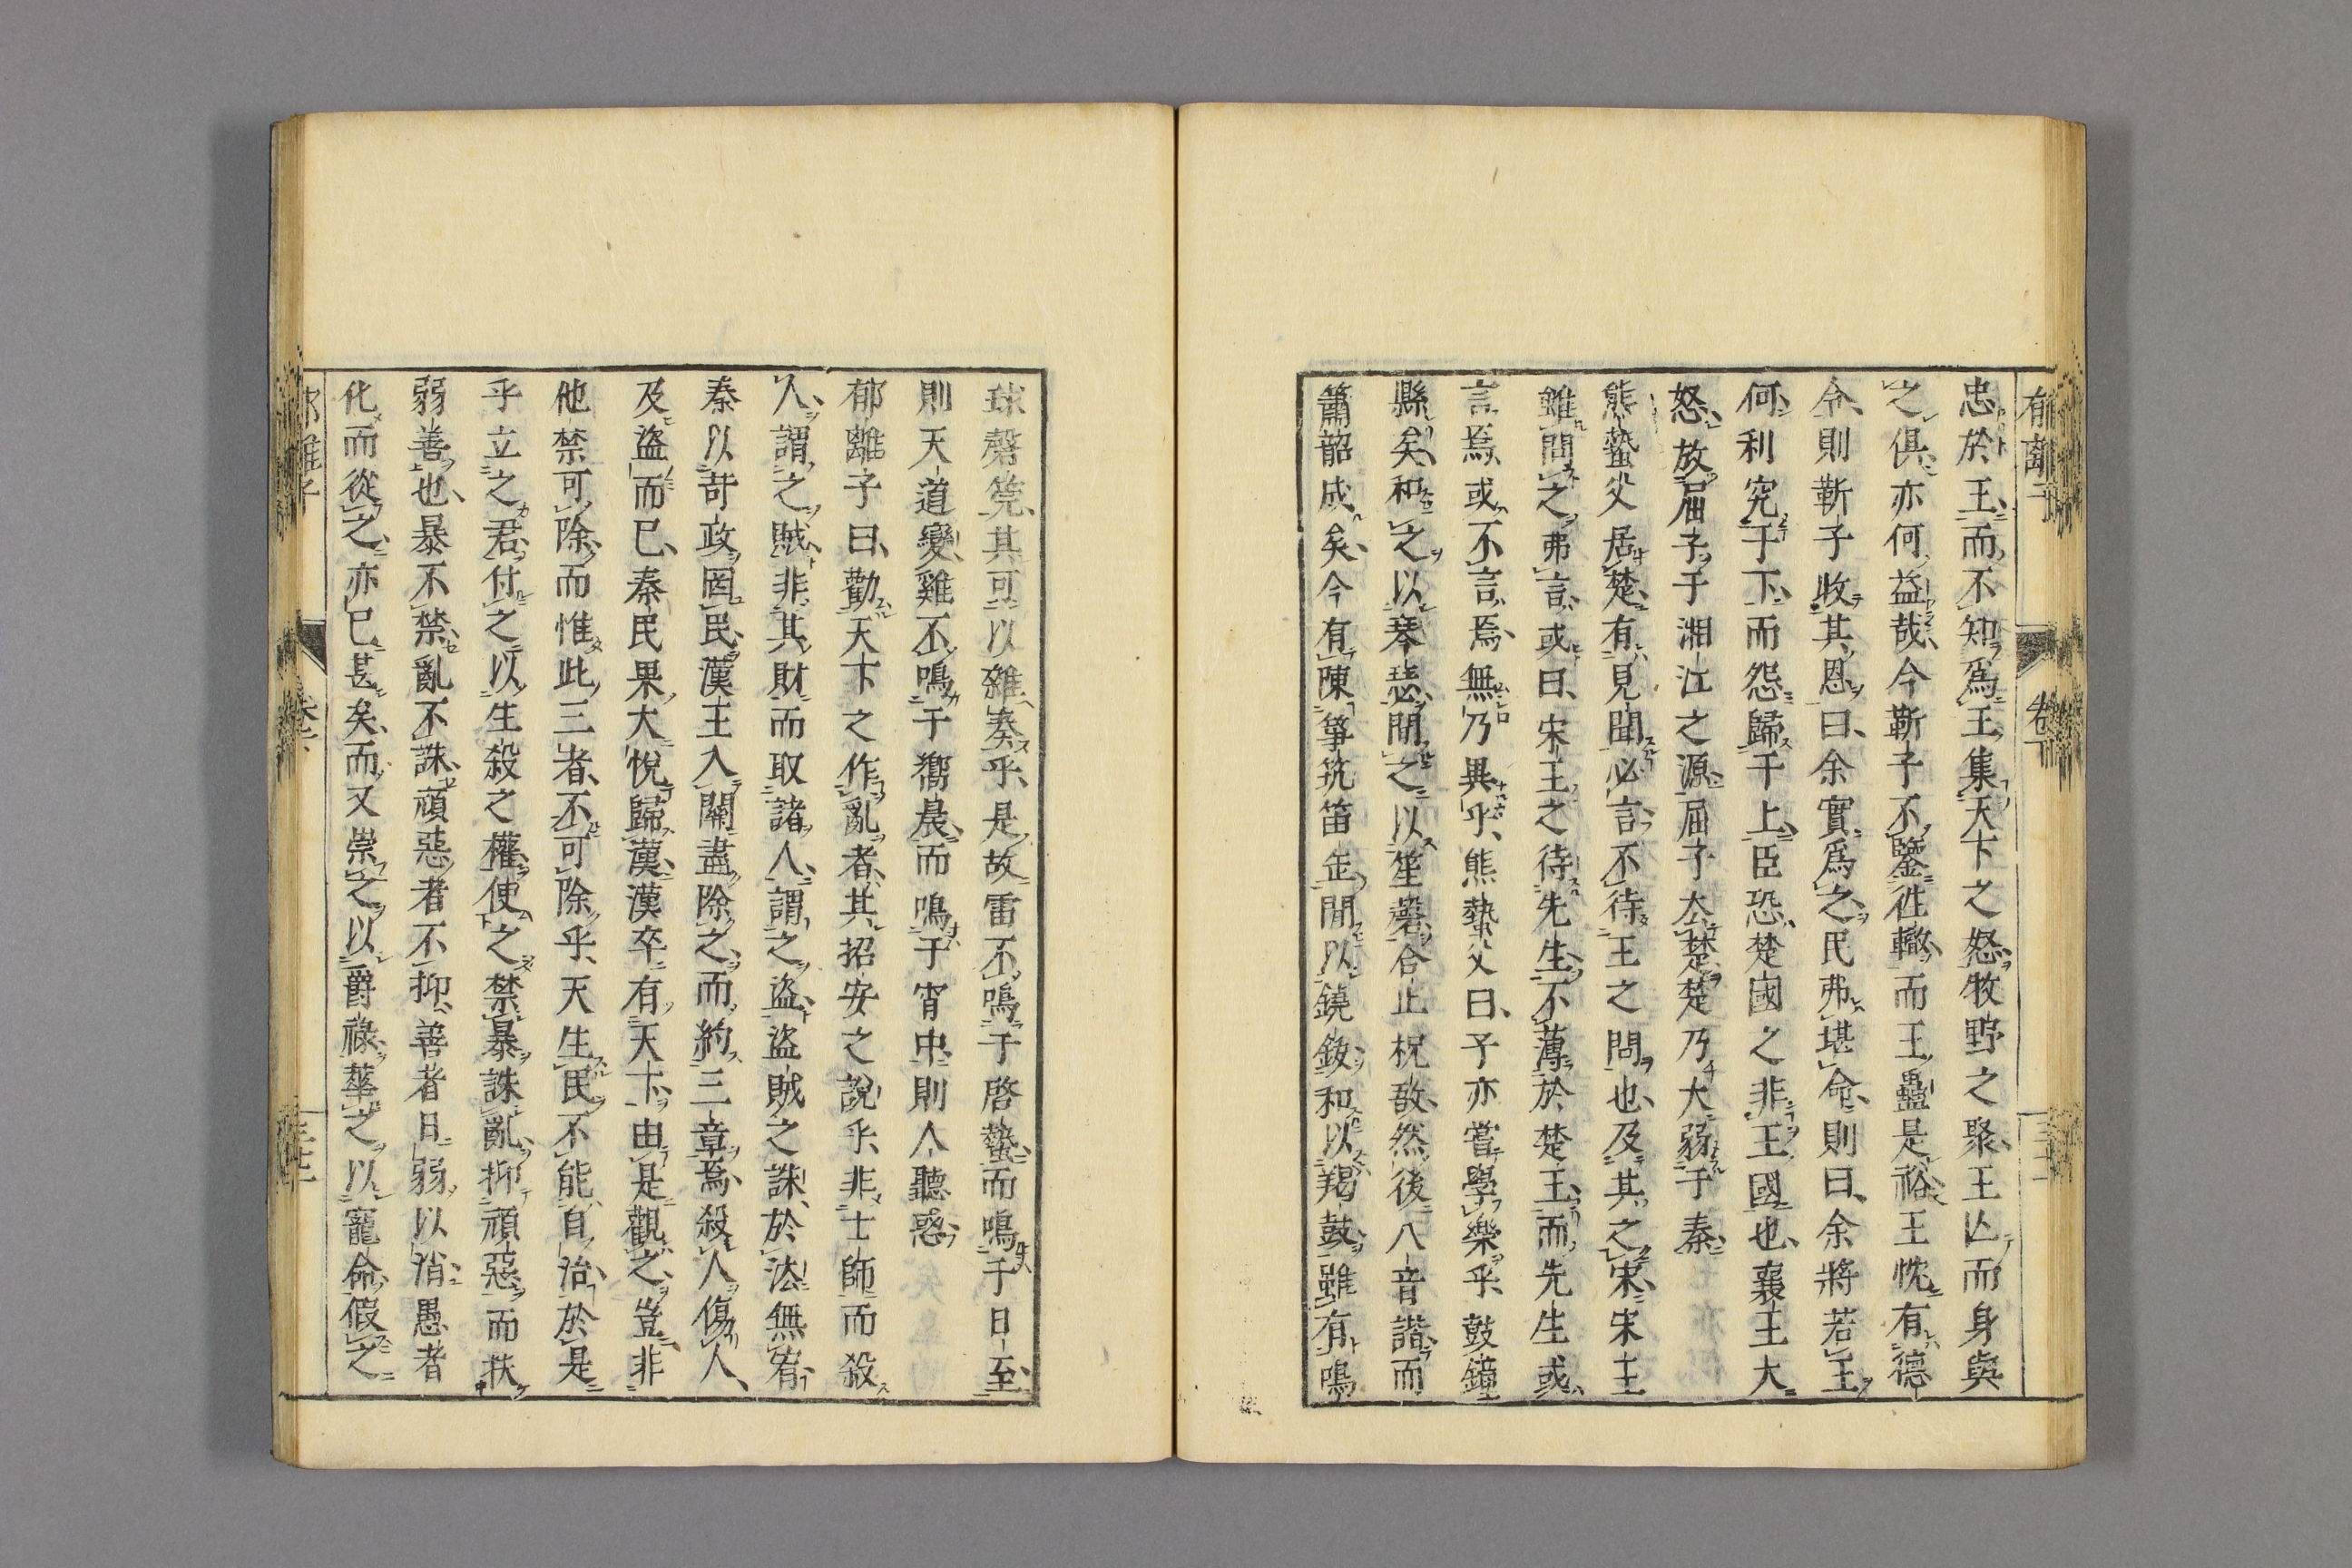 郁離子
卷下
忠於王而不知爲王集天下之怒牧野之聚王亾而身與
之俱亦何益哉今靳子不鑒徃轍而王蠱是裕王忱有德
令則靳子收其恩曰余實爲之民弗堪命則曰余將若王
何利究于下而怨歸于上臣恐楚國之非王國也襄王大
怒放屈子于湘江之源屈子去楚楚乃大弱于秦
熊蟄父居楚有見聞必言不待王之問也及其之宋宋王
雖問之弗言或曰宋王之待先生不薄於楚王而先生或
言焉或不言焉無乃異乎熊蟄父曰予亦嘗學樂乎鼓鐘
縣矣和之以琴瑟閒之以笙磬合止柷敔然後八音諧而
簫韶成矣今有陳箏筑笛缶閒以鐃鈸和以羯鼓雖有鳴
球磬筦其可以雜奏乎是故雷不鳴于啓蟄而鳴于日至
則天道變雞不鳴于嚮晨而鳴于宵中則人聽惑
郁離子曰勸天下之作亂者其招安之說乎非士師而殺
人謂之賊非其財而取諸人謂之盜盜賊之誅於法無宥
秦以苛政罔民漢王入關盡除之而約三章焉殺人傷人
及盜而已秦民果大悅歸漢漢卒有天下由是觀之豈非
他禁可除而惟此三者不可除乎天生民不能自治於是
乎立之君付之以生殺之權使之禁暴誅亂抑頑惡而扶
弱善也暴不禁亂不誅頑惡者不抑善者日弱以消愚者
化而從之亦已甚矣而又崇之以爵祿華之以寵命假之
郁離子
卷下